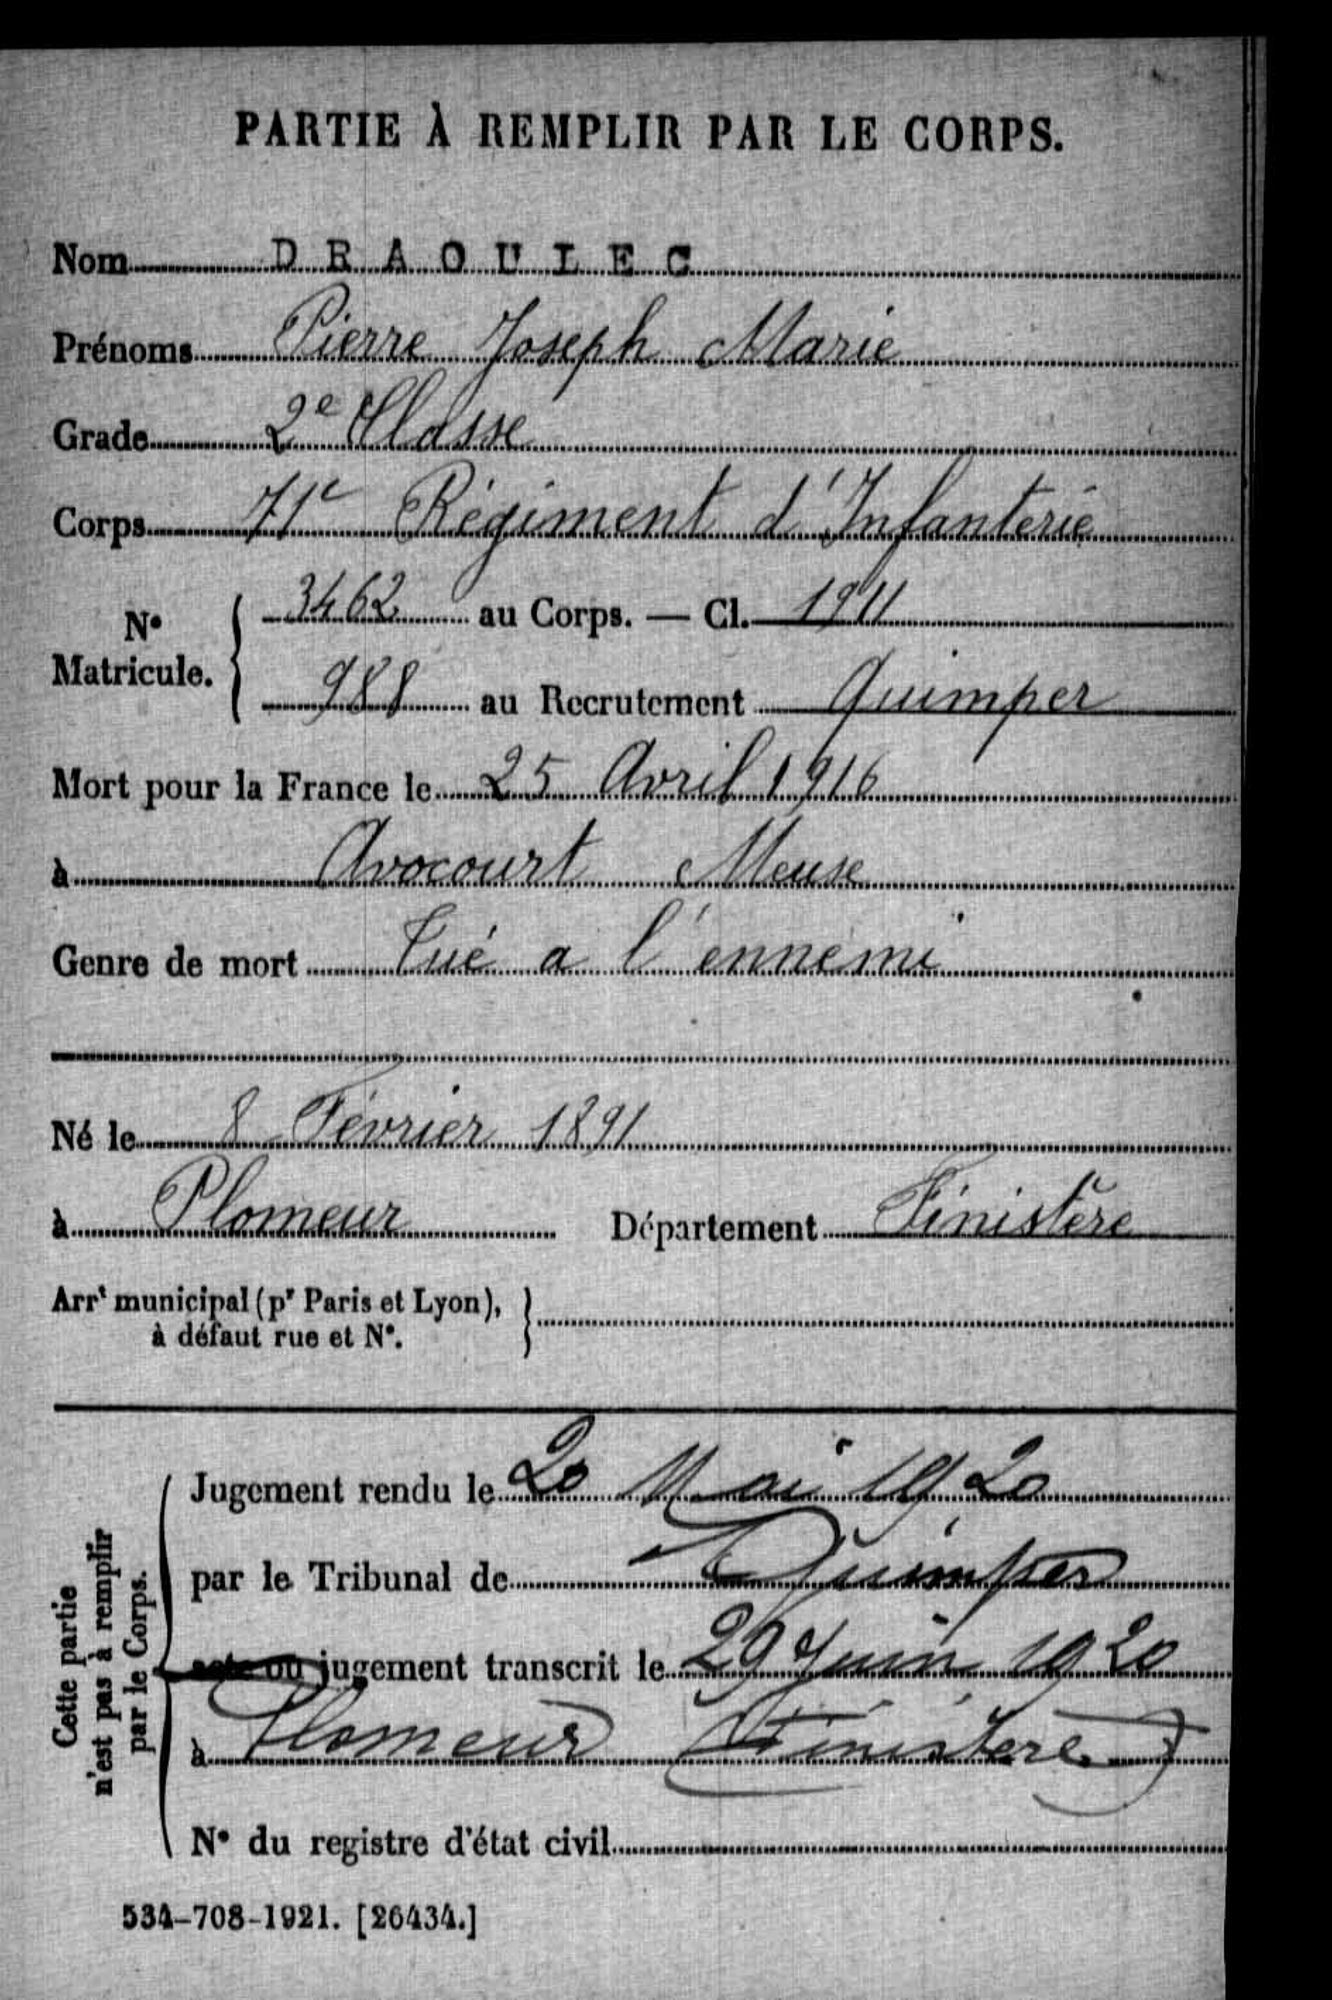 PARTIE À REMPLIR PAR LE CORPS.
Nom DRAOULEC
Prénoms Pierre Joseph Marie
Grade 2e Classe
Corps 71e Régiment d'Infanterie
N° Matricule. { 3462 au Corps. — Cl. 1911
988 au Recrutement Quimper
Mort pour la France le 25 Avril 1916
à Avocourt Meuse
Genre de mort Tué a l'ennemi
Né le 8 Février 1891
à Plomeur Département Finistère
Arrt municipal (pr Paris et Lyon), }
à défaut rue et N°.
Cette partie
n'est pas à remplir
par le Corps.
Jugement rendu le 20 Mai 1920
par le Tribunal de Quimper
acte ou jugement transcrit le 29 Juin 1920
à Plomeur (Finistère)
N° du registre d'état civil
534-708-1921. [26434.]